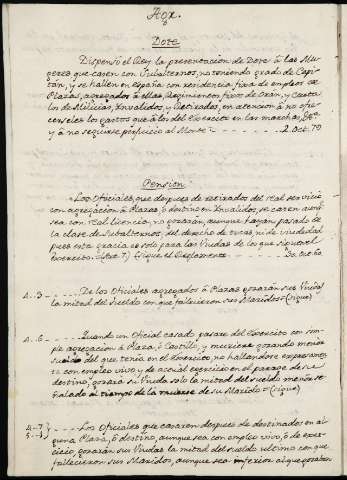 Agr.
Dote
Dispensó el Rey la presentacion de Dote á las Mu-
geres que casen con Subalternos, no teniendo grado de Capi-
tan, y se hallen en España con residencia fixa de empleos de
Plazas, agregados á ellas, Regimiento fixos de Orán, y Ceuta
los de Milicias, Invalidos, y Retirados, en atencion á no ofre-
cerseles los gastos que á los del Exercito en las marchas,
y á no seguirse perjuicio al Monte 2. Oct. 70
Pension
Los Oficiales, que despues de retirados del real servicio
con agregacion á Plazas, ó destino en Invalidos, se casen aun-
sea con Real licencia, no gozarán, aunque hayan pasado de
la clase de Subalternos, del derecho de tocas, ni de viudedad
pues esta gracia es solo para las Viudas de los que siguen el
Exercito. (Art. 7) (sigue el Reglamento
4..3 De los Oficiales agregados á Plazas gozarán sus Viudas
la mitad del sueldo con que fallecieron sus Maridos (sigue)
4..6 Quando un Oficial casado pasare del Exercito con sim-
ple agregacion á Plaza, ó Castillo, y muriere gozando menor
sueldo del que tenia en el Exercito, no hallandose expresamen-
te con empleo vivo y de actual exercicio en el parage de su
destino, gozará su Viuda solo la mitad del sueldo menor se-
ñalado al tiempo de la muerte de su Marido (sigue)
4-7 Los Oficiales que casaren despues de destinados en al-
guna Plaza, ó destino, aunque sea con empleo vivo, ó de exer-
cicio, gozarán sus Viudas la mitad del sueldo ultimo con que
fallecieron sus Maridos, aunque sea inferior al que gozaban